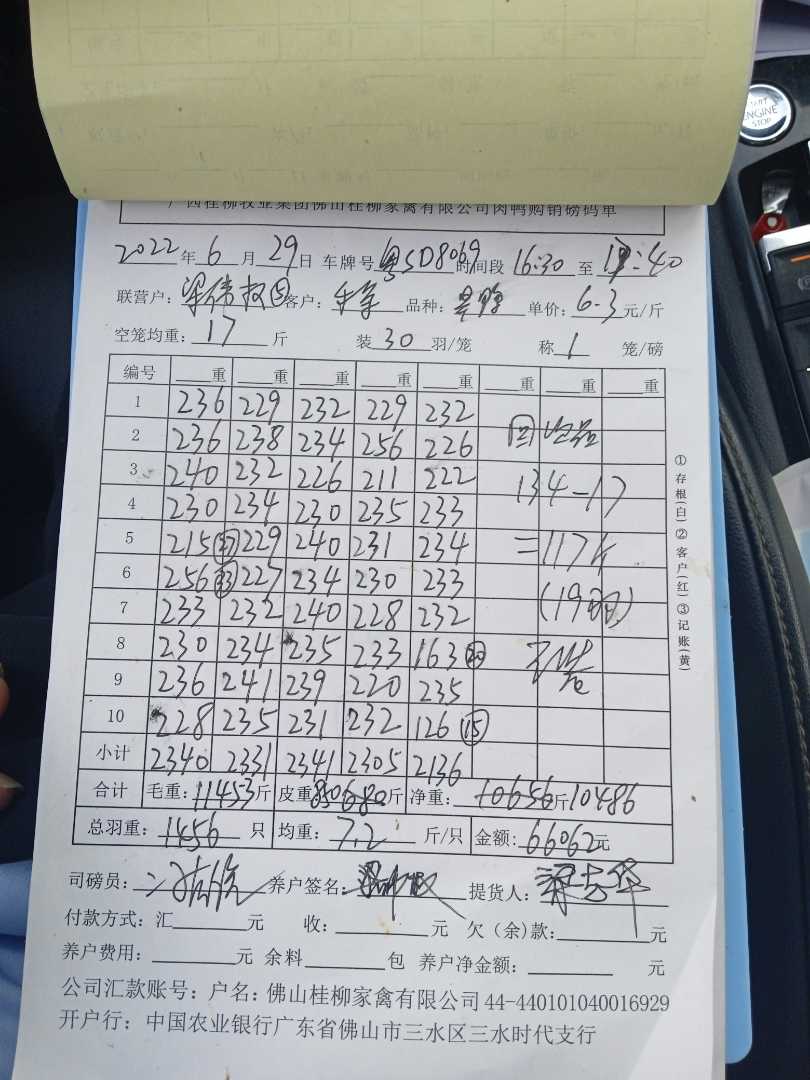 广西桂柳牧业集团佛山桂柳家禽有限公司肉鸭购销磅码单
2022年6月29日 车牌号 粤SD8069 时间段 16:30 至 17:40
联营户: 梁伟权⑤ 客户: 品种: 单价: 6.3元/斤
空笼均重: 17 斤 装 30 羽/笼 称 1 笼/磅
编号 重 重 重 重 重 重 重 重
1 236 229 232 229 232
2 236 238 234 256 226
3 240 232 226 211 222
4 230 234 230 235 233 134-17
5 215 27 229 240 231 234 =117斤
6 256 33 227 234 230 233
7 233 232 240 228 232 (19羽)
8 230 234 235 233 163 20
9 236 241 239 220 235
10 228 235 231 232 126 15
小计 2340 2331 2341 2305 2136
合计 毛重: 11453斤 皮重 850 680斤 净重: 10656斤 10486
总羽重: 1456 只 均重: 7.2 斤/只 金额: 66062元
司磅员: 养户签名: 提货人:
付款方式: 汇 元 收: 元 欠(余)款: 元
养户费用: 元 余料 包 养户净金额: 元
公司汇款账号: 户名: 佛山桂柳家禽有限公司 44-440101040016929
开户行: 中国农业银行广东省佛山市三水区三水时代支行
①存根(白)②客户(红)③记账(黄)
START
ENGINE
STOP